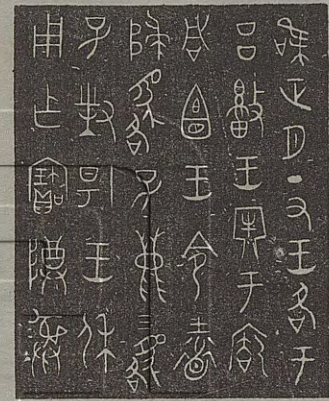 唯正月丁丑王各于
吕王牢于
咸宜王令士道
歸貉子鹿三貉
子對揚王休
用乍寶尊彝